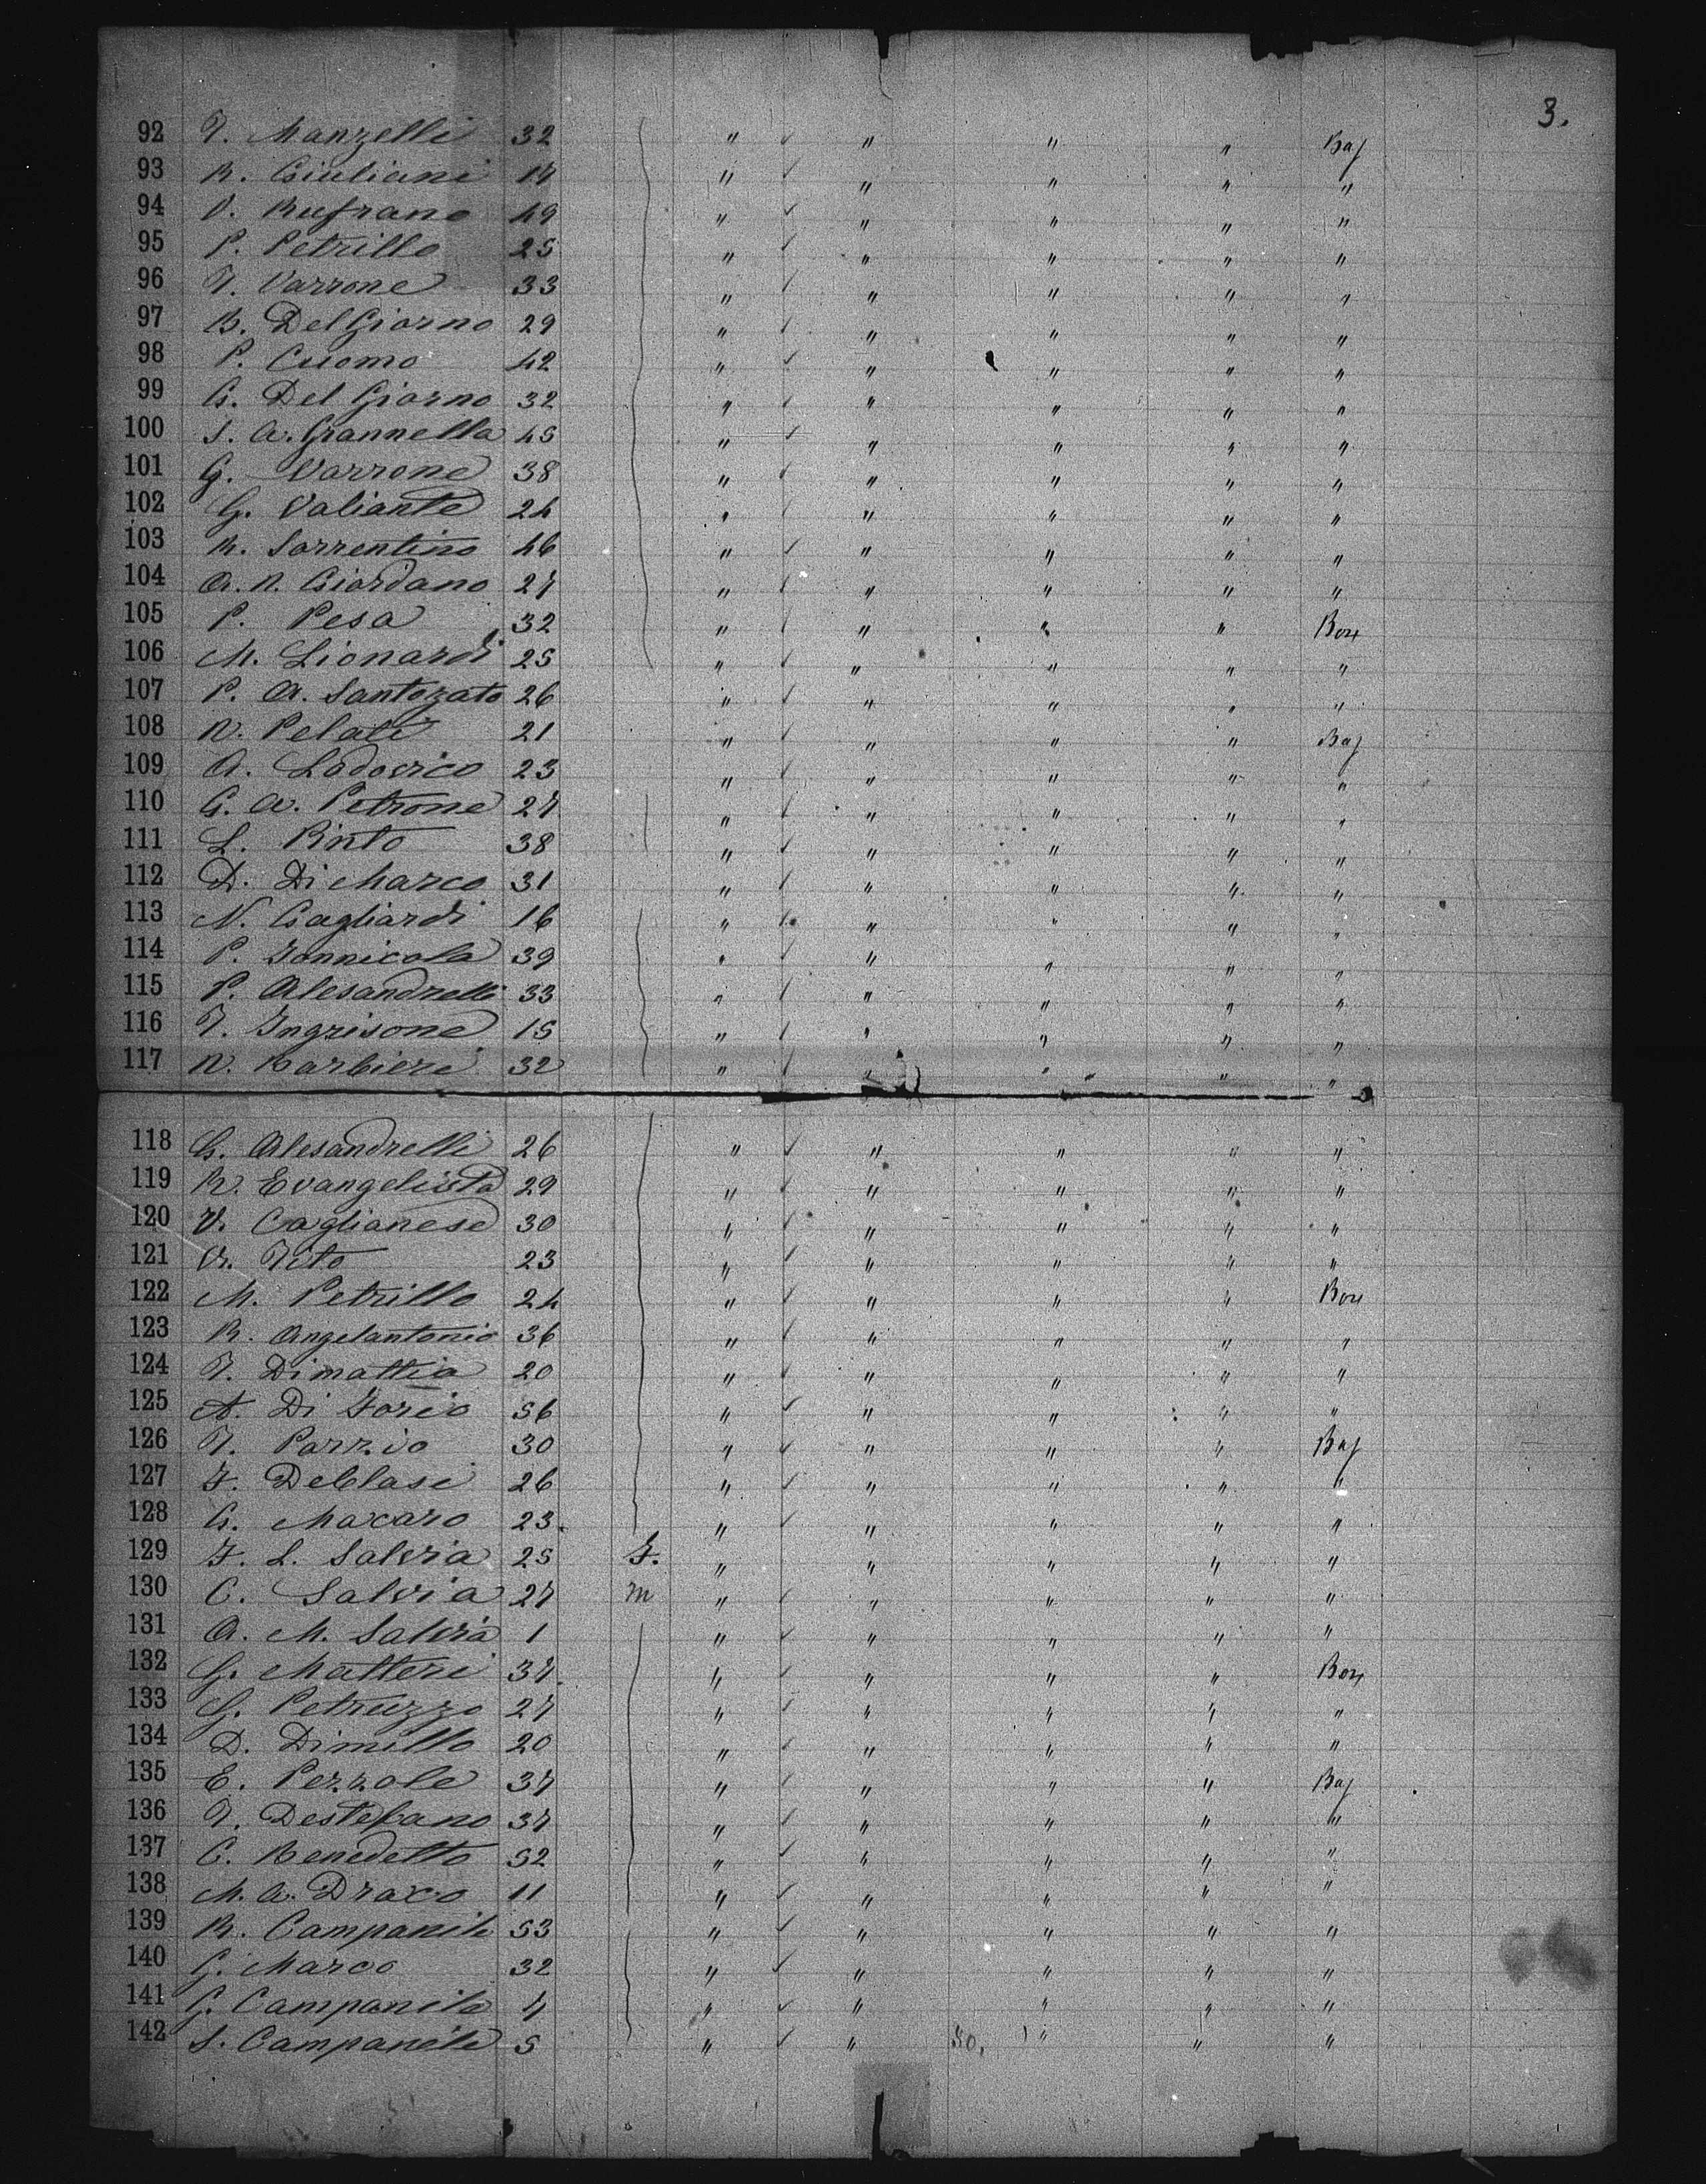 3.
92 T. Manzelli 32 " ✓ " " " Bag
93 R. Giuliani 17 " ✓ " " " "
94 V. Rufrano 49 " ✓ " " " "
95 P. Petrillo 25 " ✓ " " " "
96 T. Varrone 33 " ✓ " " " "
97 B. Del Giorno 29 " ✓ " " " "
98 P. Cuomo 42 " ✓ " " " "
99 G. Del Giorno 32 " ✓ " " " "
100 S. A. Giannella 45 " ✓ " " " "
101 G. Varrone 38 " ✓ " " " "
102 G. Valiante 24 " ✓ " " " "
103 R. Sorrentino 46 " ✓ " " " "
104 A. N. Giordano 27 " ✓ " " " "
105 P. Pesa 32 " ✓ " " " Box
106 M. Lionardi 25 " ✓ " " " "
107 P. A. Santozato 26 " ✓ " " " "
108 N. Pelati 21 " ✓ " " " Bag
109 A. Lodovico 23 " ✓ " " " "
110 G. A. Petrone 27 " ✓ " " " "
111 L. Pinto 38 " ✓ " " " "
112 D. Di Marco 31 " ✓ " " " "
113 N. Gagliardi 16 " ✓ " " " "
114 P. Iannicola 39 " ✓ " " " "
115 P. Alesandrelli 33 " ✓ " " " "
116 T. Ingrisone 15 " ✓ " " " "
117 N. Barbieri 32 " ✓ " " " "
118 G. Alesandrelli 26 " ✓ " " " "
119 R. Evangelista 29 " ✓ " " " "
120 V. Caglianese 30 " ✓ " " " "
121 V. Tito 23 " ✓ " " " "
122 M. Petrillo 24 " ✓ " " " Box
123 R. Angelantonio 36 " ✓ " " " "
124 T. Dimattia 20 " ✓ " " " "
125 A. Di Iorio 56 " ✓ " " " "
126 T. Porzio 30 " ✓ " " " Bag
127 F. Deblasi 26 " ✓ " " " "
128 G. Macaro 23 " ✓ " " " "
129 F. L. Salvia 25 F. " " " " "
130 C. Salvia 27 m " ✓ " " " "
131 A. M. Salvia 1 " ✓ " " " "
132 G. Matteri 37 " ✓ " " " Box
133 G. Petruzzo 27 " ✓ " " " "
134 D. Dimillo 20 " ✓ " " " "
135 E. Pezzole 37 " ✓ " " " Bag
136 T. Destefano 37 " ✓ " " " "
137 C. Benedetto 52 " ✓ " " " "
138 M. A. Draco 11 " ✓ " " " "
139 R. Campanile 53 " ✓ " " " "
140 G. Marco 32 " ✓ " " " "
141 G. Campanile 7 " ✓ " " " "
142 S. Campanile 5 " ✓ " " " "